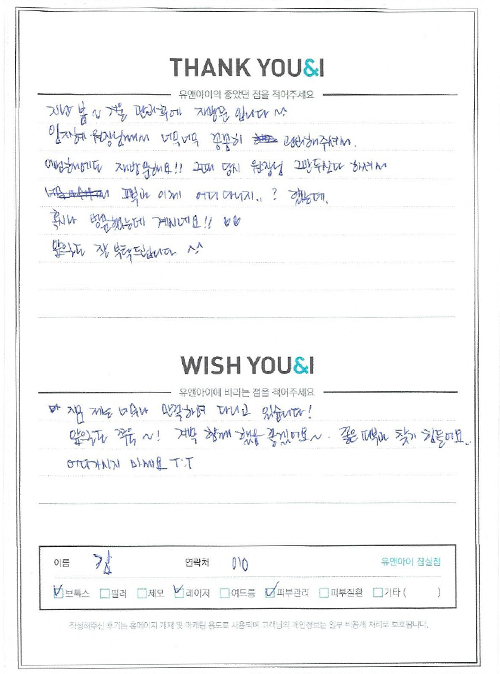 THANK YOU&I
유앤아이의 좋았던 점을 적어주세요
지난 봄~ 겨울 관리후에 재방문 입니다 ^^
원장님께서 너무너무 꼼꼼히 관리해주셔서.
재방문해요!! 그때 당시 원장님 그만두신다 하셔서
피부과 이제 어디 다니지..? 했는데.
혹시나 방문했는데 계시네요!! ㅎㅎ
앞으로도 잘 부탁드립니다 ^^
WISH YOU&I
유앤아이에 바라는 점을 적어주세요
지금 제도 너무나 만족하며 다니고 있습니다!
앞으로도 쭈욱~! 계속 함께 했음 좋겠어요~. 좋은 피부과 찾기 힘들어요..
어디가시지 마세요 T.T
이름 김 연락처 010 유앤아이 잠실점
보톡스 필러 제모 레이저 여드름 피부관리 피부질환 기타 ( )
작성해주신 후기는 유앤아이 게재 및 마케팅 용도로 사용되며 고객님의 개인정보는 일부 비공개 처리로 보호됩니다.